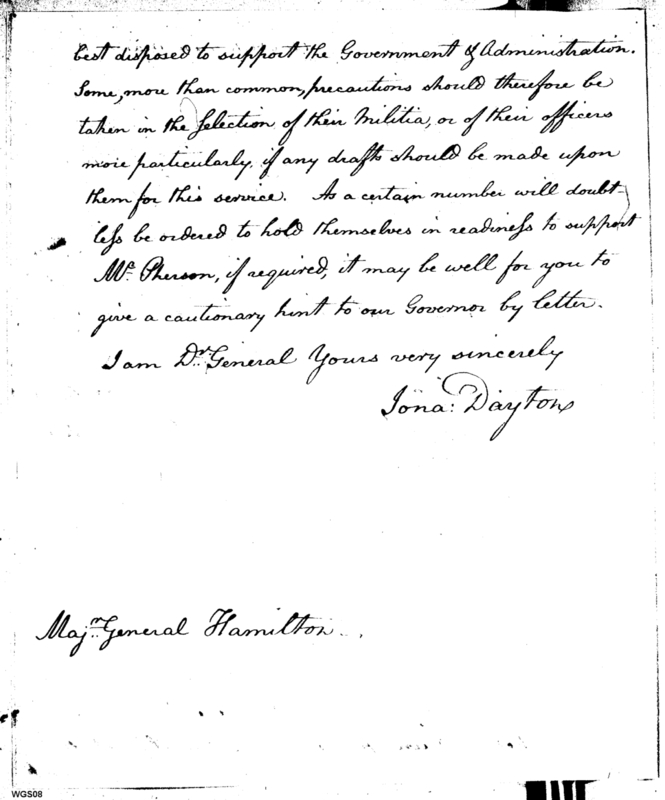 best disposed to support the Government & Administration.
Some, more than common, precautions should therefore be
taken in the selection of their Militia, or of their officers
more particularly, if any drafts should be made upon
them for this service. As a certain number will doubt-
less be ordered to hold themselves in readiness to support
Mc. Pherson, if required, it may be well for you to
give a cautionary hint to our Governor by letter.
I am Dr. General Yours very sincerely
Jona: Dayton
Majr. General Hamilton
WGS08